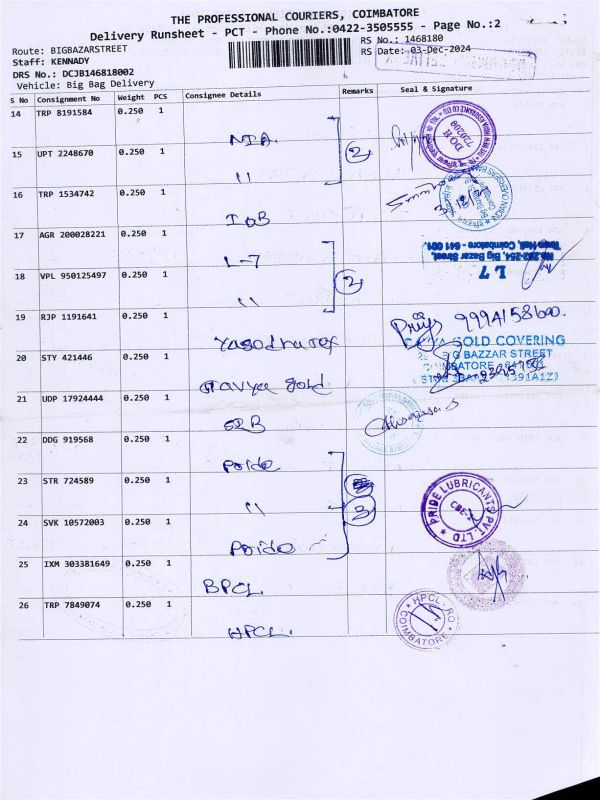 THE PROFESSIONAL COURIERS, COIMBATORE
Delivery Runsheet - PCT - Phone No.:0422-3505555 - Page No.:2
Route: BIGBAZARSTREET
RS No.: 1468180
Staff: KENNADY
RS Date: 03-Dec-2024
DRS No.: DCJB146818002
Vehicle: Big Bag Delivery
S No Consignment No Weight PCS Consignee Details Remarks Seal & Signature
14 TRP 8191584 0.250 1
NIA
15 UPT 2248670 0.250 1 2
"
16 TRP 1534742 0.250 1
IOB
17 AGR 200028221 0.250 1
L-7
No.252-254, Big Bazar Street,
Town Hall, Coimbatore - 641 001.
L 7
18 VPL 950125497 0.250 1 2
"
19 RJP 1191641 0.250 1
Priya 9994158600.
20 STY 421446 0.250 1
GOLD COVERING
BAZZAR STREET
21 UDP 17924444 0.250 1
22 DDG 919568 0.250 1
Pride
23 STR 724589 0.250 1
"
3
24 SVK 10572003 0.250 1
Pride
PRIDE LUBRICANTS PVT. LTD
CBE-1
25 IXM 303381649 0.250 1
BPCL
26 TRP 7849074 0.250 1
HPCL.
HPCL RO
COIMBATORE